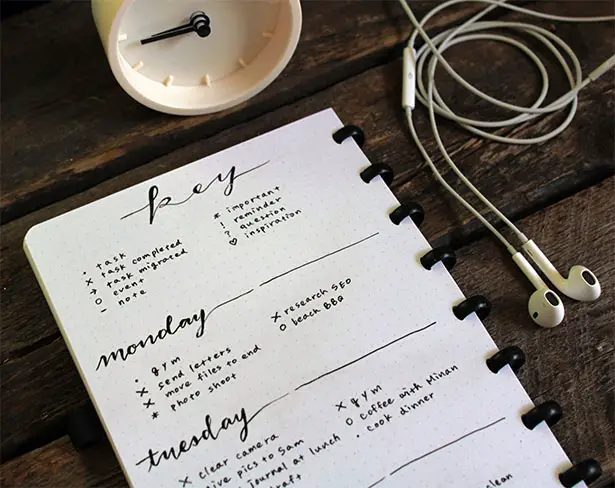 key
• task
x task completed
→ task migrated
o event
– note
* important
! reminder
? question
♡ inspiration
monday
• gym
x send letters
x move files to end
* photo shoot
x research SEO
o beach BBQ
tuesday
x clear camera
pics to Sam
journal at lunch
x gym
o coffee with Minan
• cook dinner